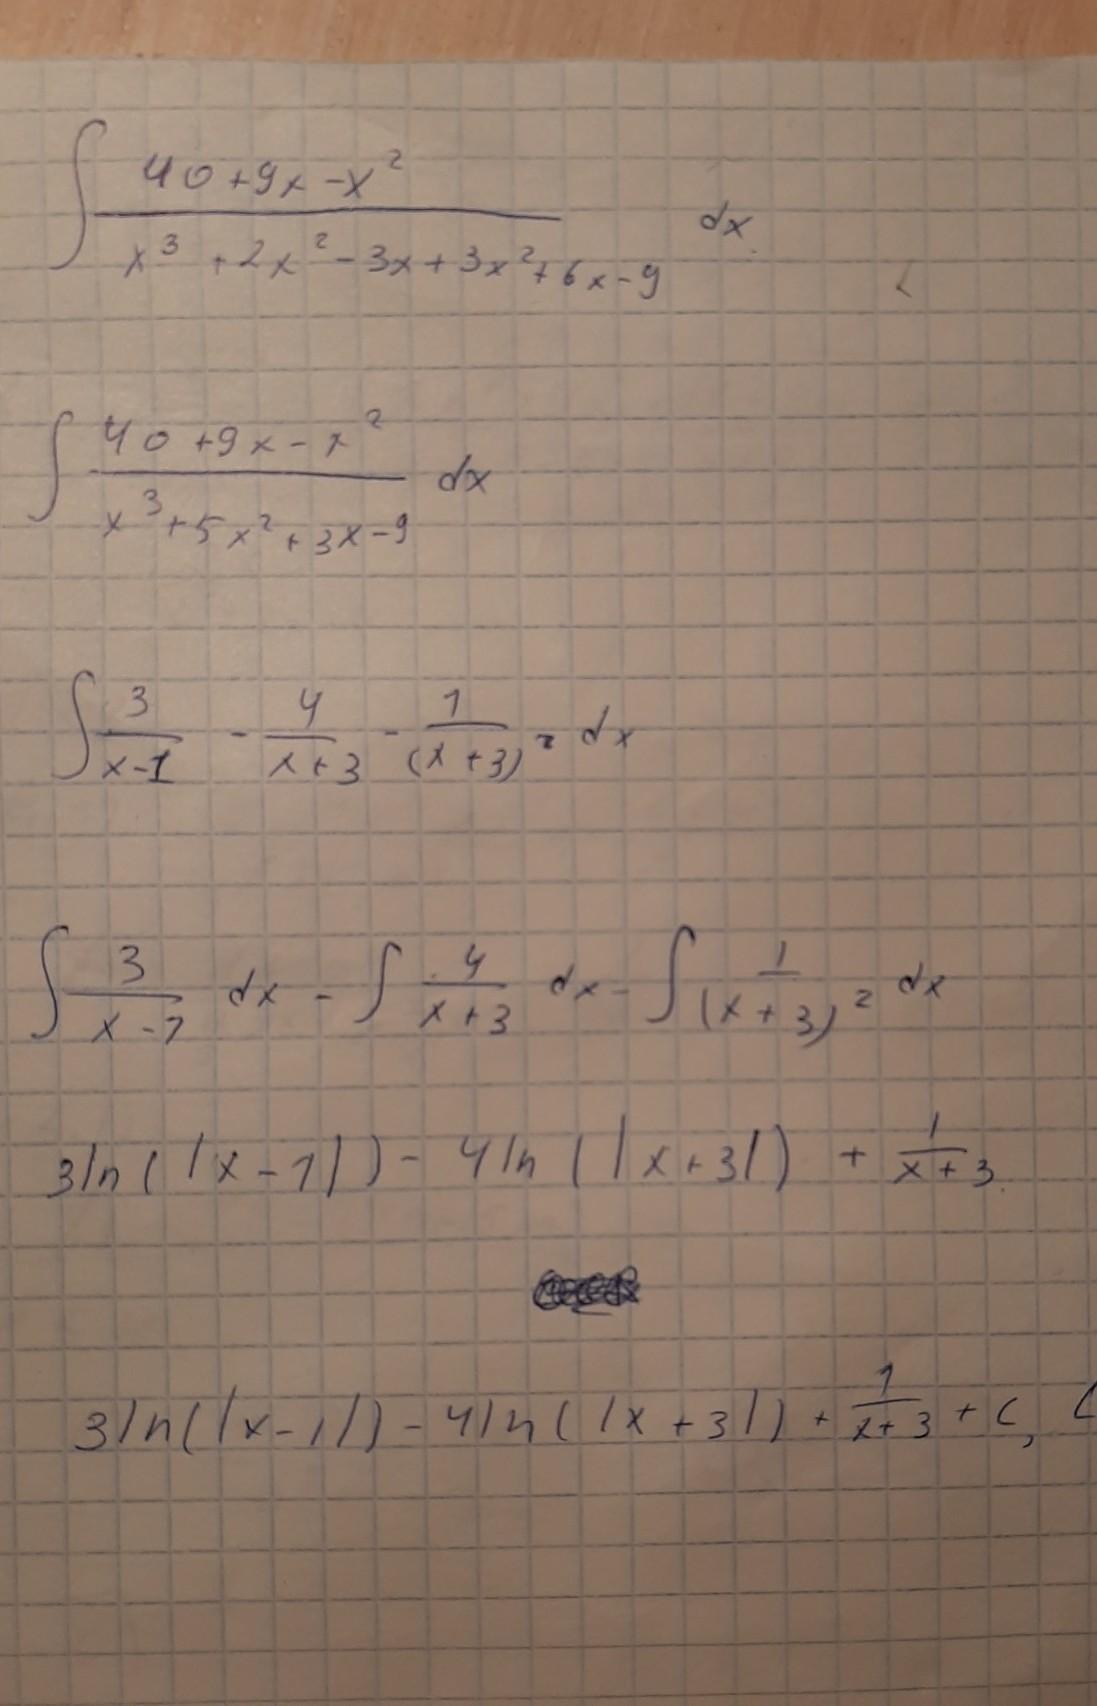 ∫ (40+9x-x²)/(x³+2x²-3x+3x²+6x-9) dx
∫ (40+9x-x²)/(x³+5x²+3x-9) dx
∫ 3/(x-1) - 4/(x+3) - 1/(x+3)² dx
∫ 3/(x-1) dx - ∫ 4/(x+3) dx - ∫ 1/(x+3)² dx
3ln(|x-1|) - 4ln(|x+3|) + 1/(x+3)
3ln(|x-1|) - 4ln(|x+3|) + 1/(x+3) + C,